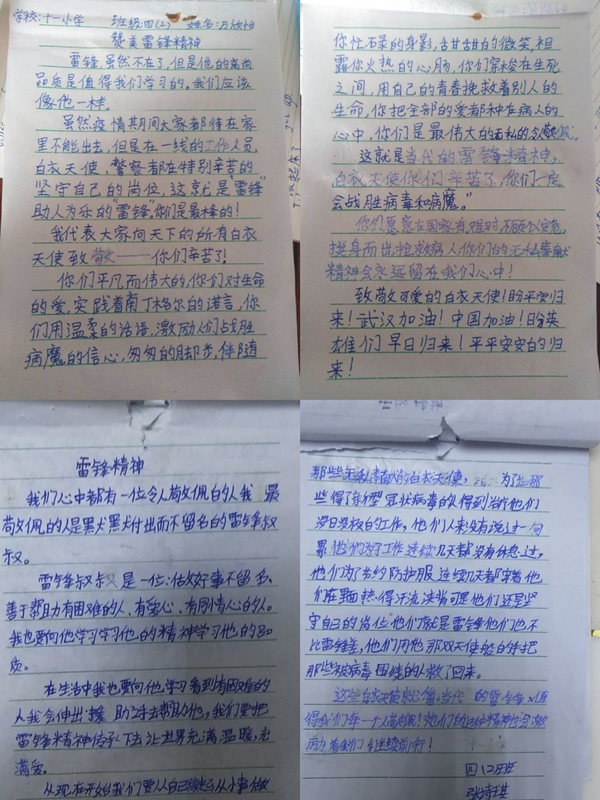 学校:十一小学 班级:四(2) 姓名:
赞美雷锋精神
雷锋,虽然不在了,但是他的高尚
品质是值得我们学习的。我们应该
像他一样。
虽然疫情其月间大家都待在家
里不能出去,但是在一线的工作人员,
白衣天使、警察都在特别辛苦的
坚守自己的岗位,这就是“雷锋”
助人为乐的“雷锋”,你们是最棒的!
我代表大家向天下的所有白衣
天使致敬——你们辛苦了!
你们平凡而伟大的,你们对生命
的爱,实践着南丁格尔的诺言,你
们用温柔的话语,激励人们战胜
病魔的信心,匆匆的脚步,伴随
你忙碌的身影,甜甜的微笑,袒
露你火热的心肠,你们穿梭在生死
之间,用自己的青春挽救着别人的
生命,你把全部的爱都种在病人的
心中,你们是最伟大的无私的
这就是当代的雷锋精神,
白衣天使你们辛苦了,你们一定
会战胜病毒和病魔。”
你们愿意在国家有难时,不顾个人安危,
挺身而出抢救病人你们的无私奉献
精神会永远留在我们心中!
致敬可爱的白衣天使!盼平安归
来!武汉加油!中国加油!盼英
雄们早日归来!平平安安的归
来!
雷锋精神
我们心中都有一位令人敬佩的人我最
敬佩的人是黑犬黑犬付出而不留名的雷锋叔
叔。
雷锋叔叔是一位做好事不留名、
善于帮助有困难的人、有爱心、有同情心的人。
我也要向他学习学习他的精神学习他的品
质。
在生活中我也要向他学习看到有困难的
人我会伸出援助之手去帮助他,我们要把
雷锋精神传承下去让世界充满温暖,充
满爱。
从现在开始我们要从自己做起从小事做
那些无私奉献的白衣天使,为了让那
些得了新型冠状病毒的人得到治疗他们
没日没夜的工作,他们从来没有说过一句
累他们为了工作连续几天都没有休息过,
他们为了节约防护服连续几天都穿着他
们在里面热得汗流浃背可是他们还是坚
守自己的岗位他们就是雷锋他们也不
比雷锋差,他们用他那双天使般的手把
那些被病毒困绕的人救了回来。
这些白衣天使就像当代的雷锋多么值
得我们每一个人尊佩!他们的这种精神也会激
励着我们继续前行!
四(2)班
张琦琪